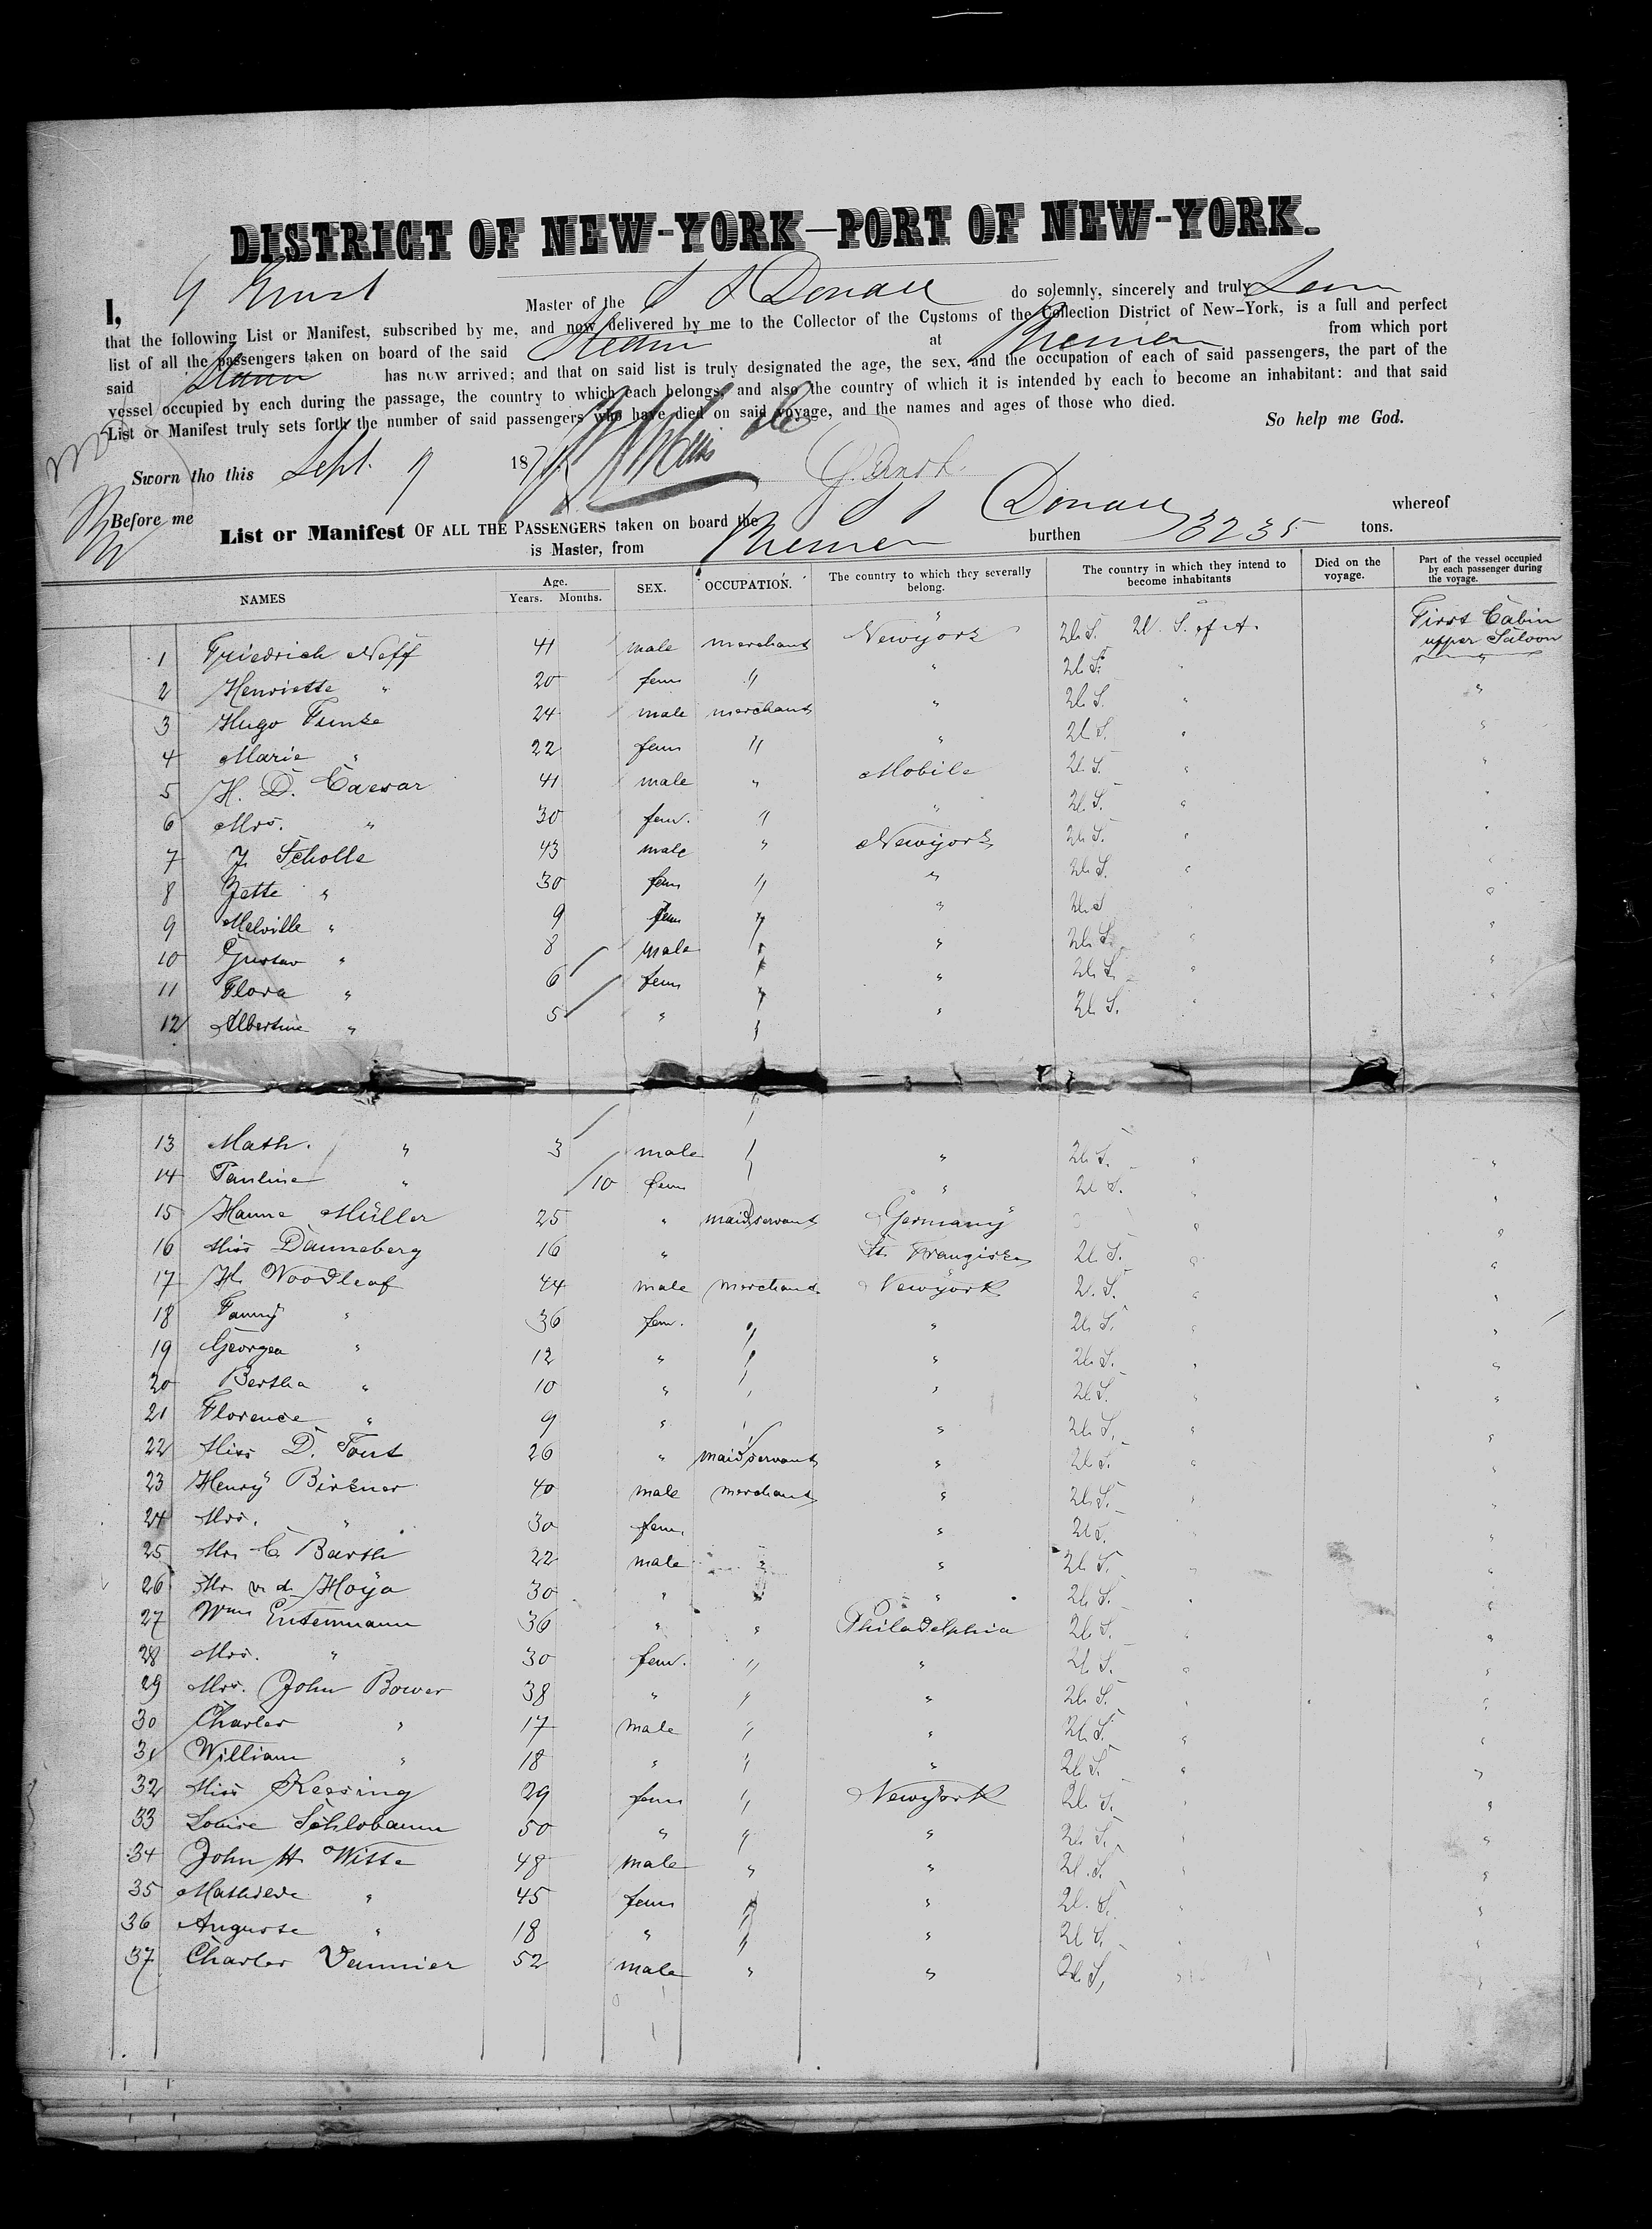 DISTRICT OF NEW-YORK—PORT OF NEW-YORK.
I, G Ernst Master of the S S Donau do solemnly, sincerely and truly
that the following List or Manifest, subscribed by me, and now delivered by me to the Collector of the Customs of the Collection District of New-York, is a full and perfect
list of all the passengers taken on board of the said Steamr at Bremen from which port
said Steamr has now arrived; and that on said list is truly designated the age, the sex, and the occupation of each of said passengers, the part of the
vessel occupied by each during the passage, the country to which each belongs, and also the country of which it is intended by each to become an inhabitant: and that said
List or Manifest truly sets forth the number of said passengers who have died on said voyage, and the names and ages of those who died.
So help me God.
Sworn tho this Sept. 9 187 G. Ernst
Before me
List or Manifest OF ALL THE PASSENGERS taken on board the S S Donau whereof
is Master, from Bremen burthen 3235 tons.
NAMES Age. Years. Months. SEX. OCCUPATION. The country to which they severally belong. The country in which they intend to become inhabitants Died on the voyage. Part of the vessel occupied by each passenger during the voyage.
1 Friedrich Neff 41 male merchant Newyork U. S. U. S. of A. First Cabin upper Saloon
2 Henriette " 20 fem " " U. S. " "
3 Hugo Funke 24 male merchant " U. S. " "
4 Marie " 22 fem " " U. S. " "
5 H. D. Caesar 41 male " Mobile U. S. " "
6 Mrs. " 30 fem. " " U. S. " "
7 J. Scholle 43 male " Newyork U. S. " "
8 Jette " 30 fem " " U. S. " "
9 Melville " 9 fem " " U. S "
10 Gustav " 8 male " " U. S. " "
11 Flora " 6 fem " " U. S. " "
12 Albertine " 5 " " " U. S. " "
13 Math. " 3 male " " U. S. " "
14 Pauline " 10 fem " U. S. " "
15 Hanna Müller 25 " maidservant Germany " "
16 Miss Danneberg 16 " St. Frangisko U. S. " "
17 H. Woodleaf 44 male merchant Newyork U. S. " "
18 Fanny " 36 fem. " " U. S. " "
19 Georgea " 12 " " " U. S. " "
20 Bertha " 10 " " " U. S. " "
21 Florence " 9 " " " U. S. " "
22 Miss D. Tout 26 " maidservant " U. S. " "
23 Henry Birkner 40 male merchant " U. S. " "
24 Mrs. " 30 fem. " U. S. " "
25 Mr. C. Barth 22 male " " U. S. " "
26 Mr. v. d. Hoya 30 " " " U. S. " "
27 Wm Entemann 36 " " Philadelphia U. S. " "
28 Mrs. " 30 fem. " " U. S. " "
29 Mrs. John Bower 38 " " " U. S. " "
30 Charles " 17 male " " U. S. " "
31 William " 18 " " " U. S. " "
32 Miss Keesing 29 fem " Newyork U. S. " "
33 Louise Schlobaum 50 " " " U. S. " "
34 John H. Witte 48 male " " U. S. " "
35 Mathilde " 45 fem " " U. S. " "
36 Auguste " 18 " " " U. S. " "
37 Charles Vannier 52 male " " U. S. " "